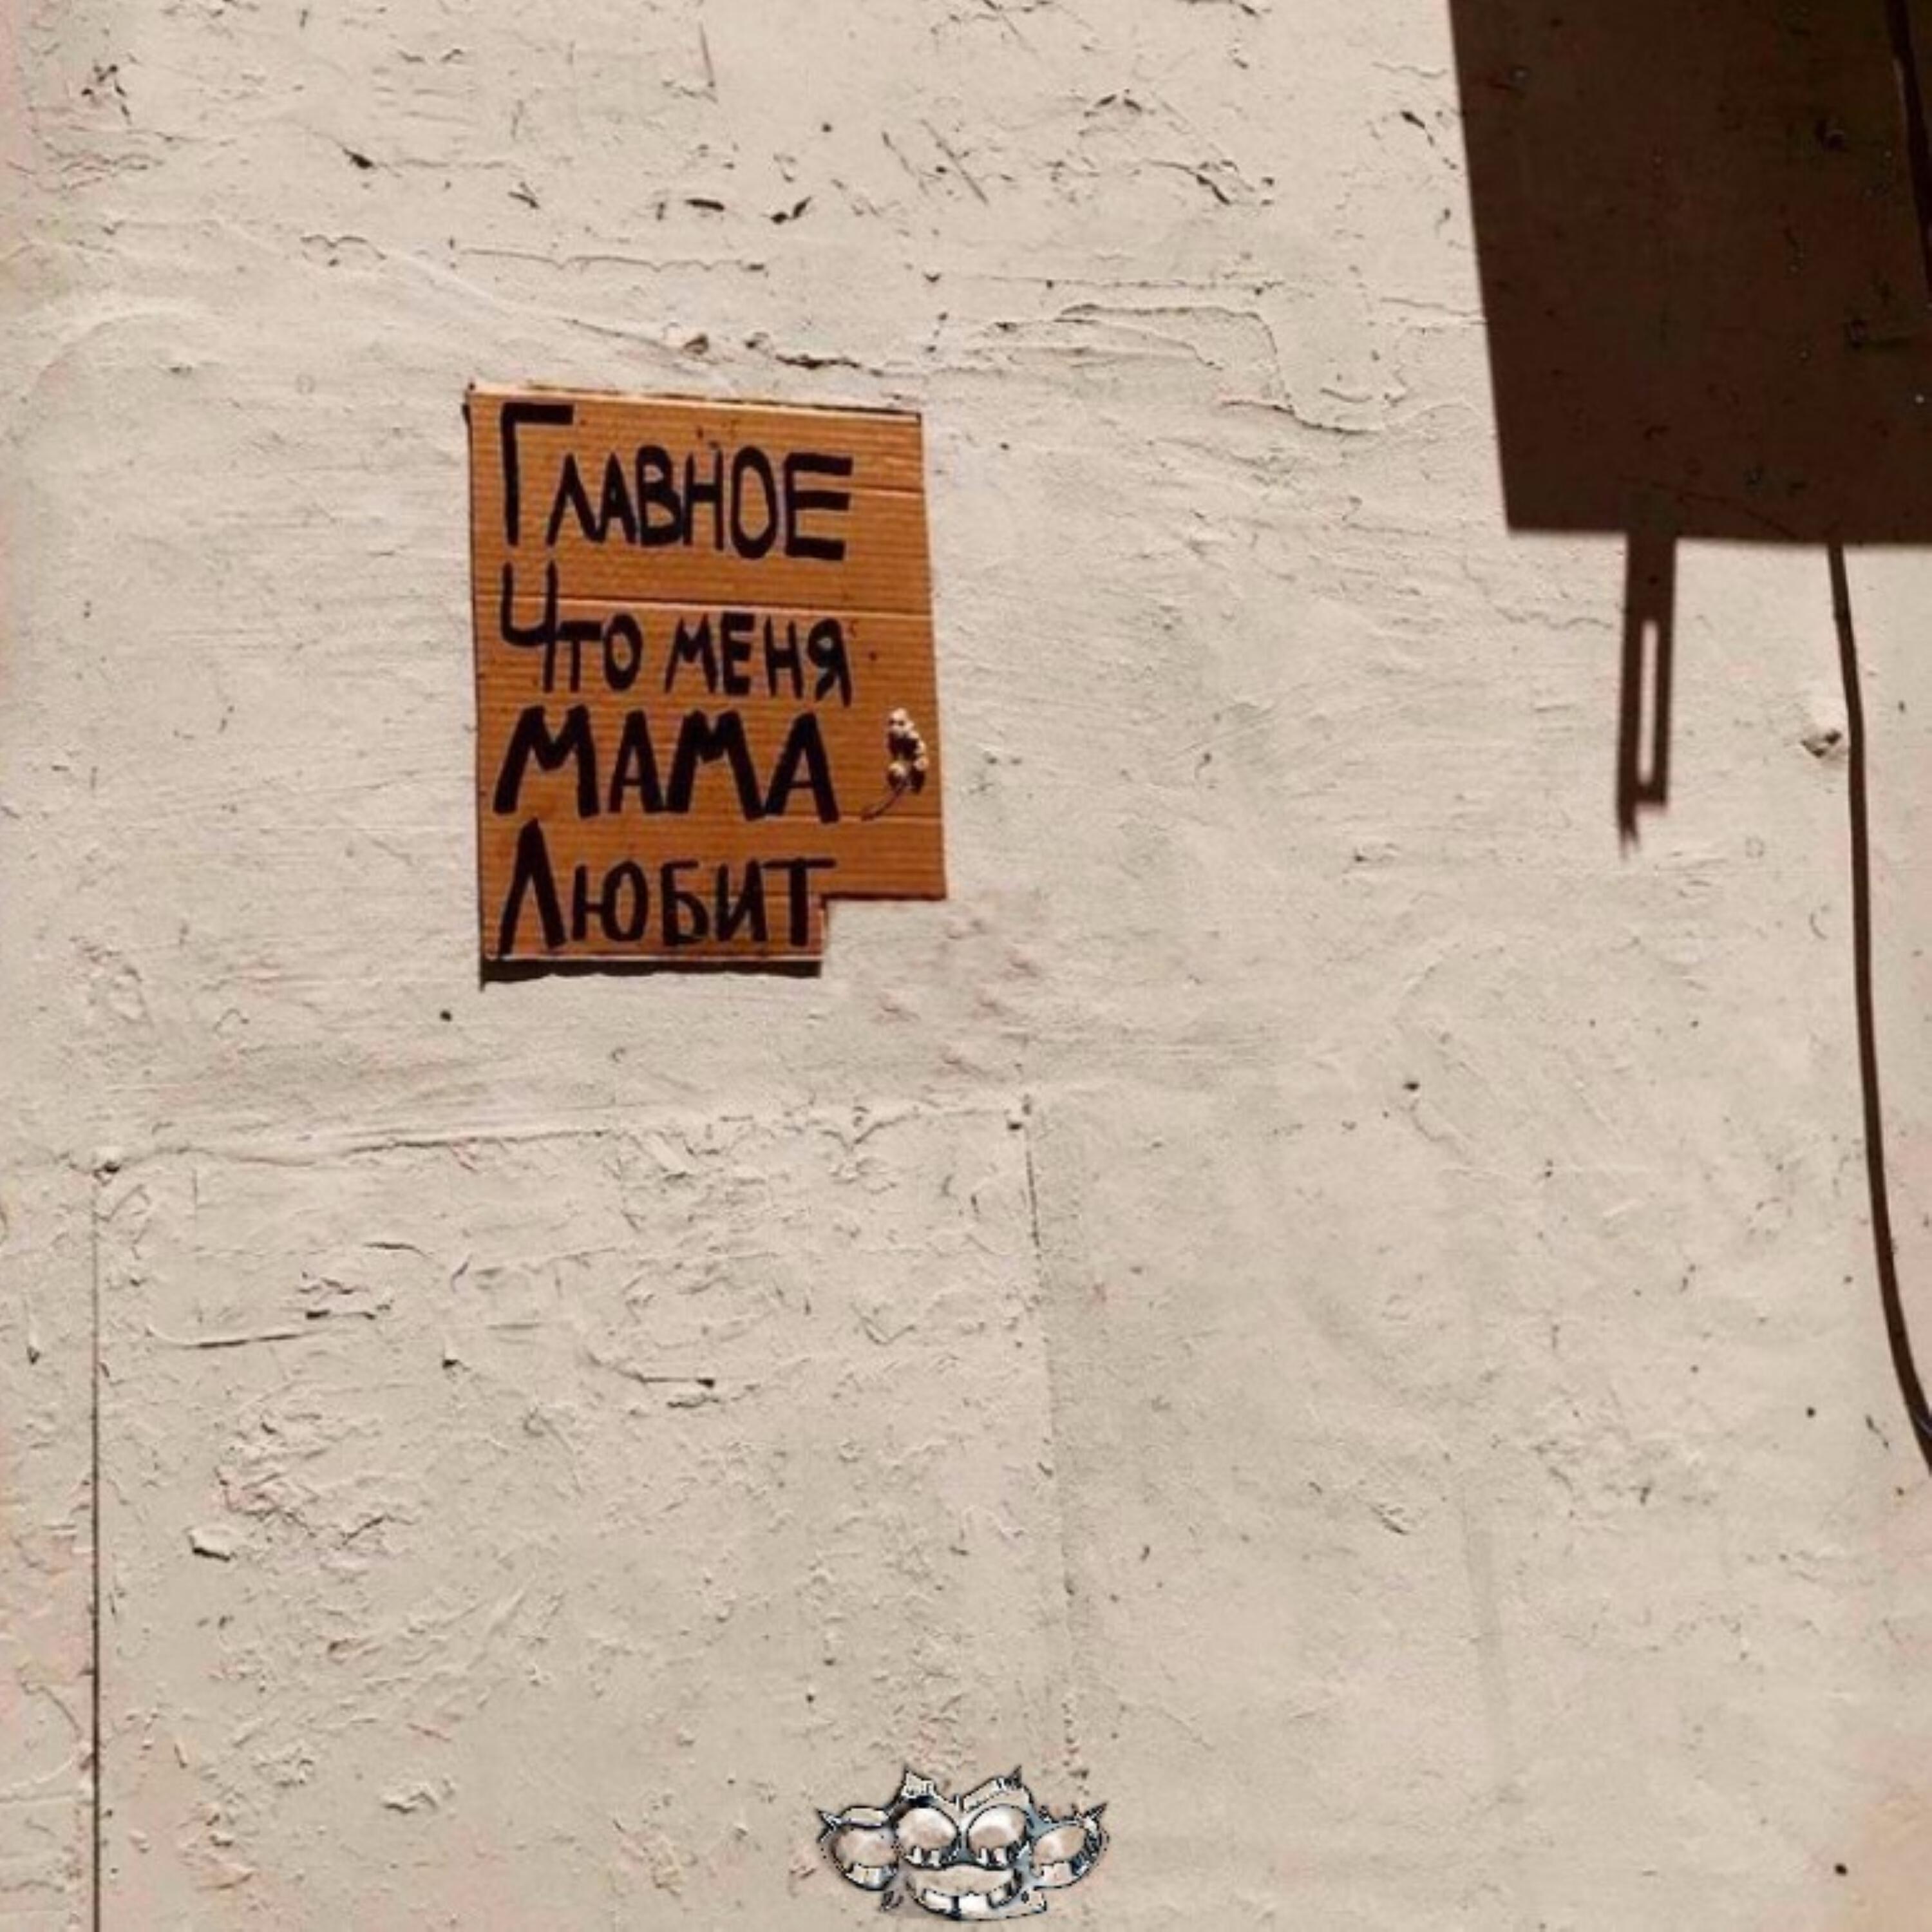 Главное
Что меня
мама
Любит